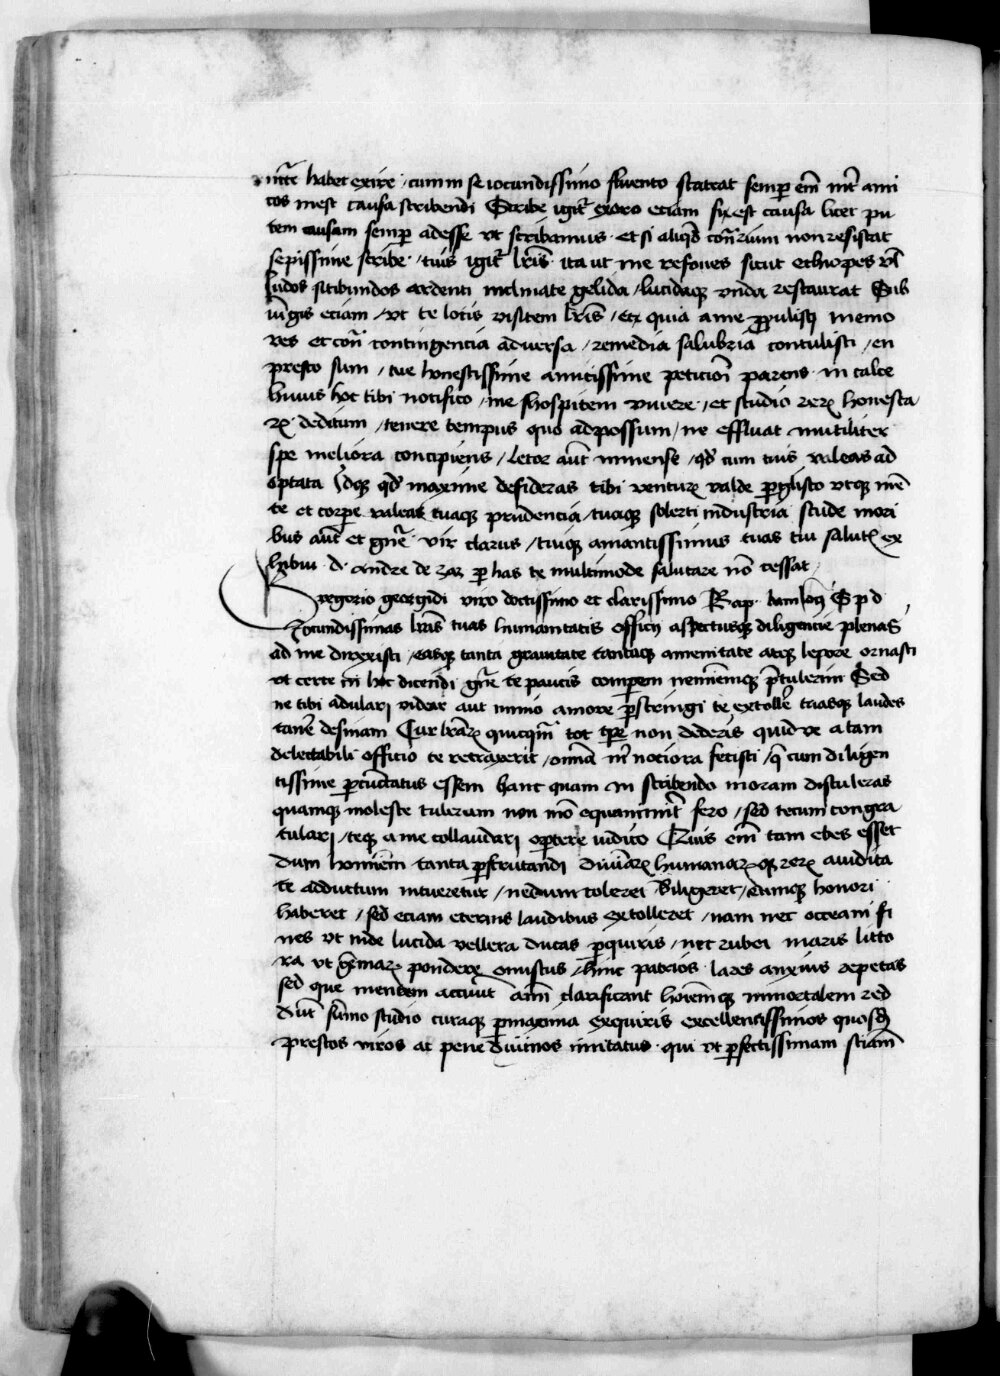 mẽte habet exire / cum in se iocundissimo fluento scateat semper em̃ int̃ ami
cos inest causa scribendi Scribe igit̃ exoro eciam si est causa licet pu
tem causam semp adesse vt scribamus · et si aliqd̃ cont̃rium non resistat
sepissime scribe · tuis igit̃ lr̃is ita ut me refoues sicut ethiopes vl̃
Indos sitibundos ardenti in climate gelida / lucidaqꝫ vnda restaurat Sub
iũgis etiam / vt te lotis visitem lr̃is / et quia a me memo
res et cont̃ contingencia adversa / remedia salubria contulisti / en
presto sum / tue honestissime amicissime peticioni parens · in calce
huius hoc tibi notifico / me sospitem vivere / et studio reꝝ honesta
ꝝ deditum / tenere tempus quo ad possum / ne effluat inutiliter
spe meliora concipiens / letor aut̃ inmense / qd̃ cum tuis valeas ad
optata Idqꝫ qd̃ maxime desideras tibi ventuꝝ valde vtqꝫ mẽ
te et corpe valeas tuaqꝫ prudencia / tuaqꝫ solerti industria stude mori
bus aut̃ et gñe · vir clarus / tuiqꝫ amantissimus tuas tui salut̃ ex
hibui · d · andre de zaꝫ p has te multimode salutare nõ cessat /
Gregorio georgidi viro doctissimo et clarissimo Rap · S p d
Iocundissimas lr̃as tuas humanitatis officij aspectusqꝫ diligencie plenas
ad me direxisti / easqꝫ tanta gravitate tantaqꝫ amenitate atqꝫ lepore ornasti
vt certe in hoc dicendi gñe te paucis compem neminemqꝫ p̃tulerim Sed
ne tibi adulari videar aut nimio amore pstringi te extollẽ tuasqꝫ laudes
canẽ desinam Cur lr̃aꝝ quicqm̃ tot tpe non dederis quidve a tam
delectabili officio te retraxerit / omnia m̃ nociora fecisti / q̃ cum diligen
tissime pcũctatus essem hanc quam in scribendo moram distuleras
quamqꝫ moleste tuleram non mõ equanimit̃ fero / sed tecum congra
tulari / teqꝫ a me collaudari optere iudico Quis em̃ tam ebes esset
dum hominẽ tanta pscrutandi divinaꝝ humanaꝝqꝫ reꝝ avidita
te adductum intueretur / nedum coleret diligeret / eumqꝫ honori
haberet / sed eciam eternis laudibus extolleret / nam nec occeani fi
nes vt inde lucida vellera ducas pquiris / nec rubei maris litto
ra vt gẽmaꝝ pondere onustus / hinc patrios lares anxius repetas
sed que mentem acuũt aĩm clarificant hoĩemqꝫ inmortalem red
dũt sũmo studio curaqꝫ pmaxima exquiris excellentissimos quosqꝫ
prestos viros ac pene divinos imitatus · qui vt pfectissimam sciam̃